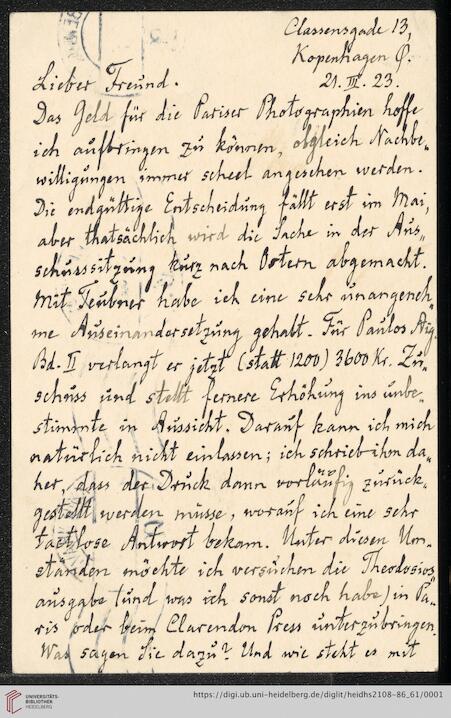 Classensgade 13,
Kopenhagen Ø.
21. III. 23.
Lieber Freund.
Das Geld für die Pariser Photographien hoffe
ich aufbringen zu können, obgleich Nachbe-
willigungen immer scheel angesehen werden.
Die endgültige Entscheidung fällt erst im Mai,
aber thatsächlich wird die Sache in der Aus-
schusssitzung kurz nach Ostern abgemacht.
Mit Teubner habe ich eine sehr unangeneh-
me Auseinandersetzung gehabt. Für Paulos Aig.
Bd. II verlangt er jetzt (statt 1200) 3600 Kr. Zu-
schuss und stellt fernere Erhöhung ins unbe-
stimmte in Aussicht. Darauf kann ich mich
natürlich nicht einlassen; ich schrieb ihm da-
her, dass der Druck dann vorläufig zurück-
gestellt werden müsse, worauf ich eine sehr
tactlose Antwort bekam. Unter diesen Um-
ständen möchte ich versuchen die Theodosios
ausgabe (und was ich sonst noch habe) in Pa-
ris oder beim Clarendon Press unterzubringen.
Was sagen Sie dazu? Und wie steht es mit
UNIVERSITÄTS-
BIBLIOTHEK
HEIDELBERG
https://digi.ub.uni-heidelberg.de/diglit/heidhs2108-86_61/0001